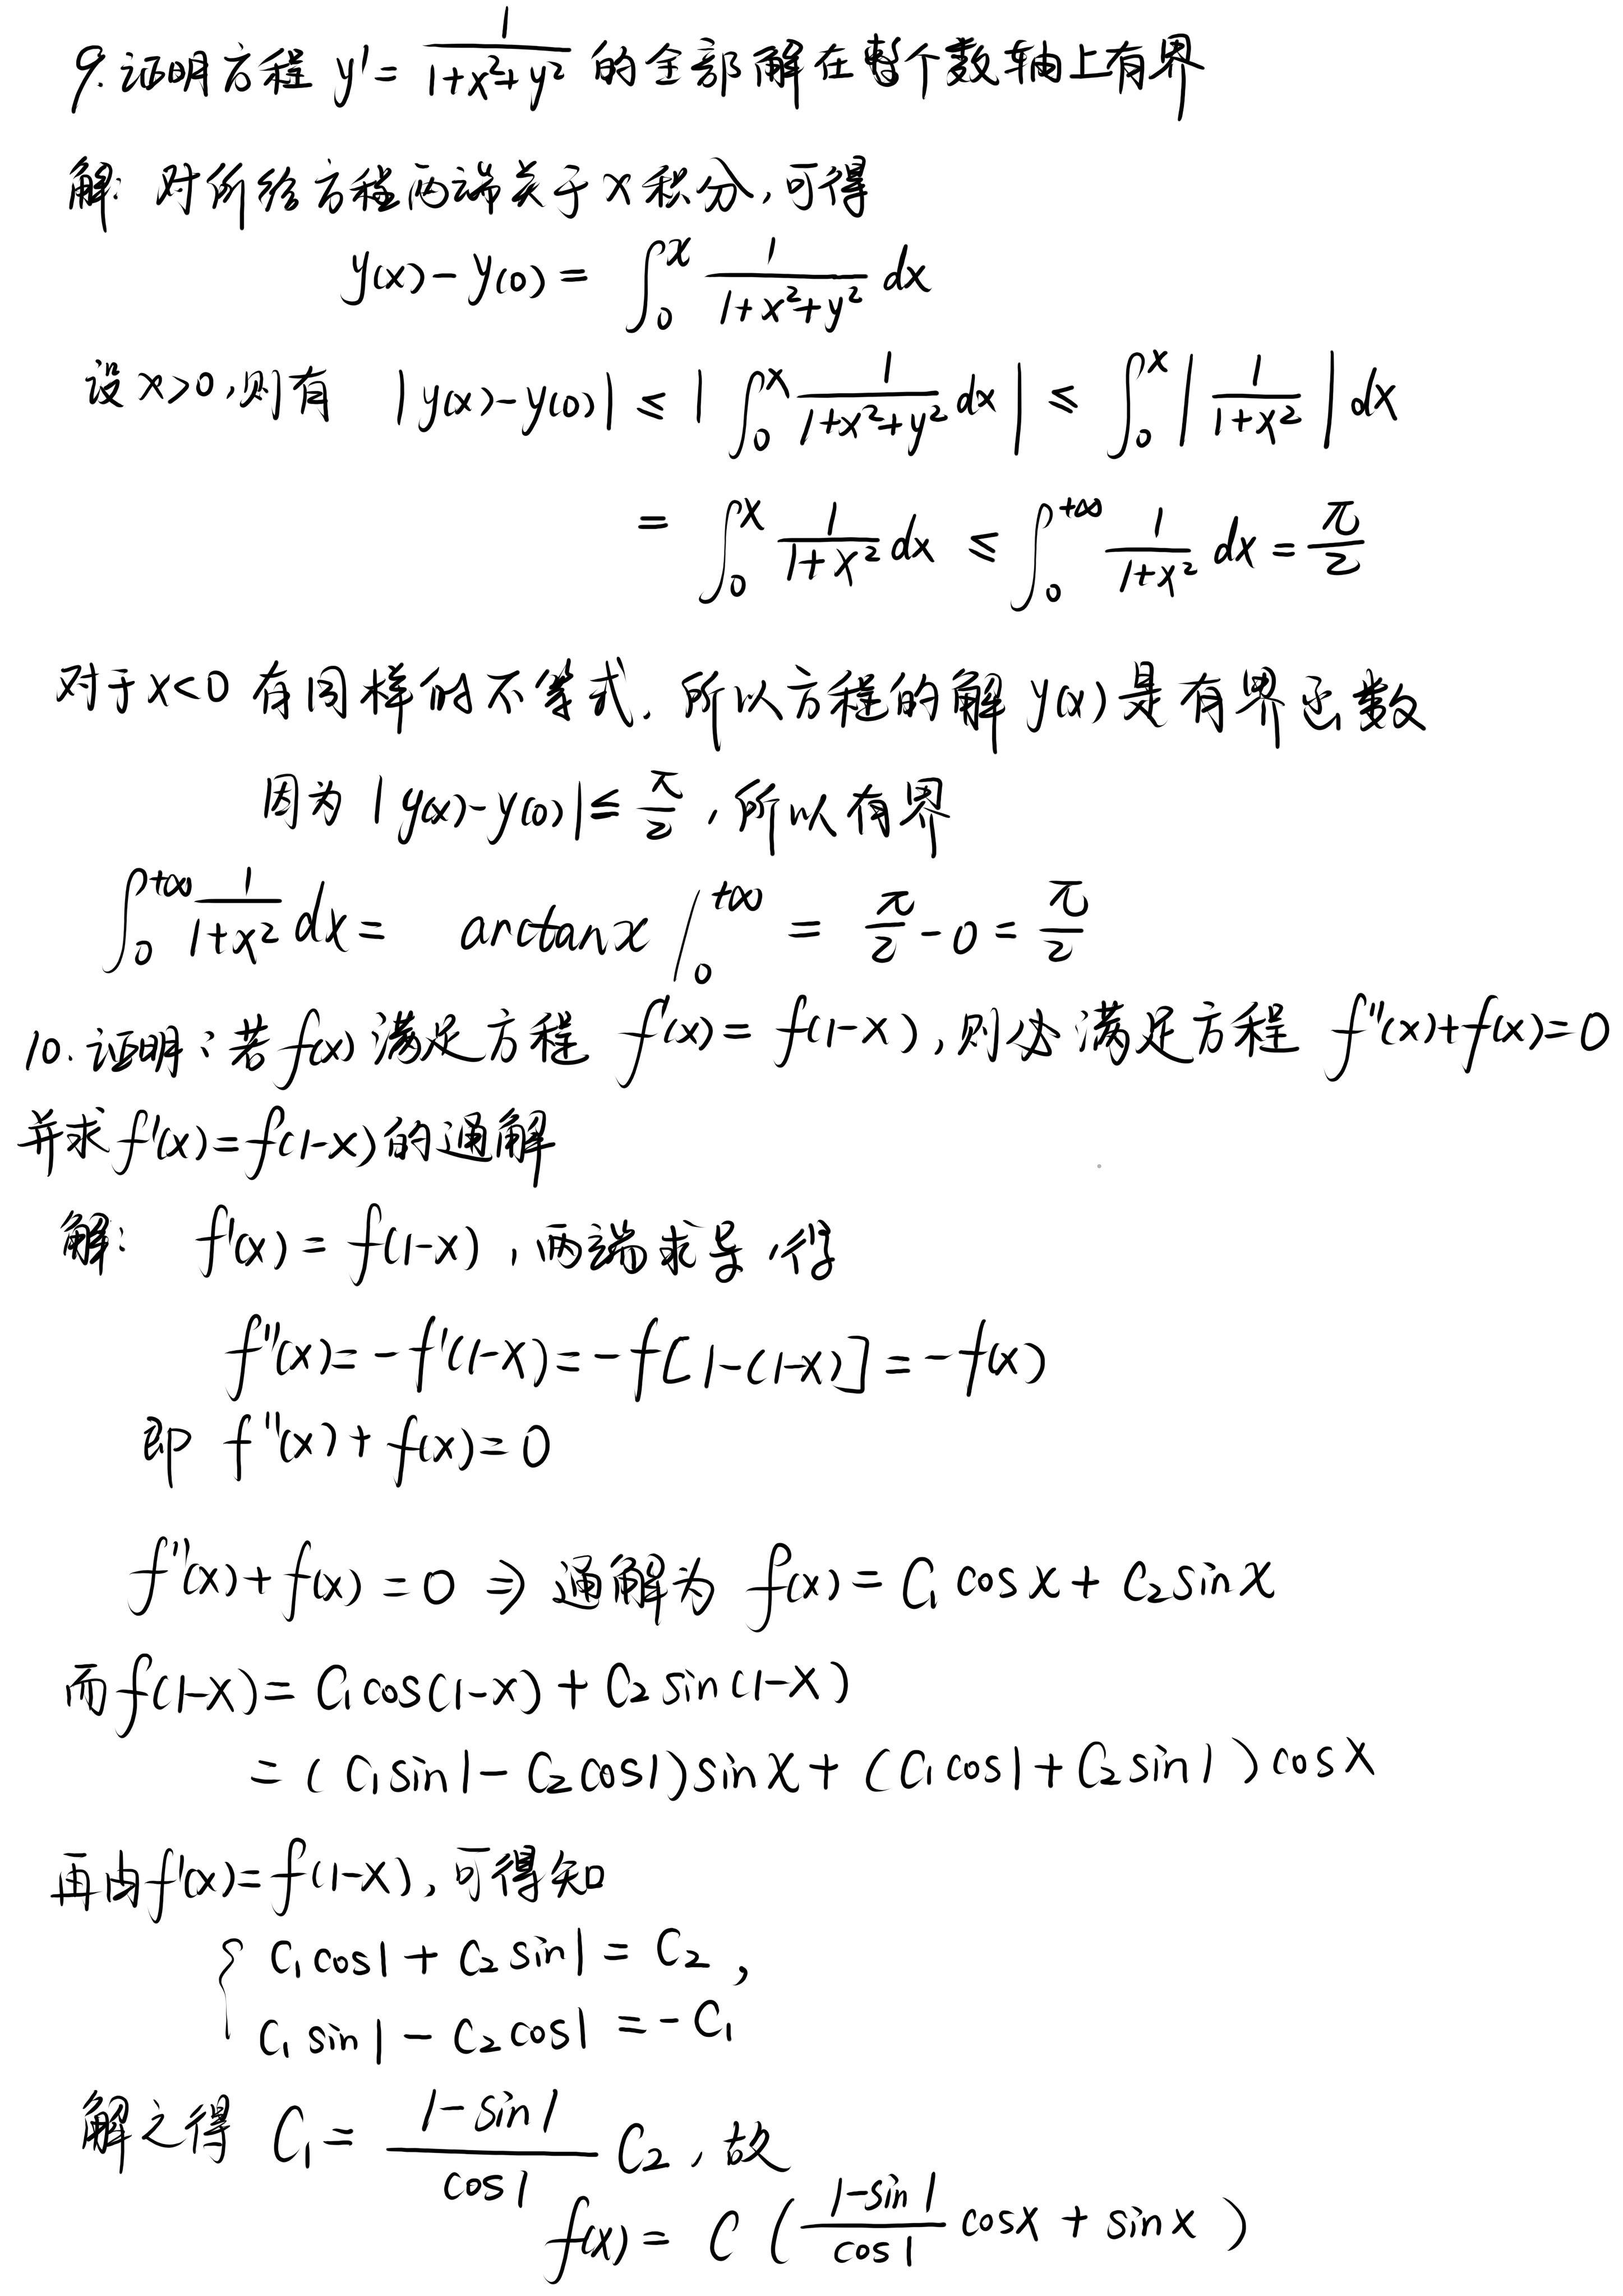 9. 证明方程 y' = \frac{1}{1+x^2+y^2} 的全部解在整个数轴上有界
解: 对所给方程两端关于x积分,可得
y(x)-y(0) = \int_0^x \frac{1}{1+x^2+y^2} dx
设x>0,则有 |y(x)-y(0)| ≤ |\int_0^x \frac{1}{1+x^2+y^2} dx| ≤ \int_0^x |\frac{1}{1+x^2}| dx
= \int_0^x \frac{1}{1+x^2} dx ≤ \int_0^{+∞} \frac{1}{1+x^2} dx = \frac{π}{2}
对于x<0 有同样的不等式. 所以方程的解 y(x) 是有界函数
因为 |y(x)-y(0)| ≤ \frac{π}{2}, 所以有界
\int_0^{+∞} \frac{1}{1+x^2} dx = arctanx |_0^{+∞} = \frac{π}{2} - 0 = \frac{π}{2}
10. 证明:若f(x)满足方程 f'(x)=f(1-x),则必满足方程 f''(x)+f(x)=0
并求f'(x)=f(1-x)的通解
解: f'(x)=f(1-x),两端求导,得
f''(x)=-f'(1-x)=-f[1-(1-x)]=-f(x)
即 f''(x)+f(x)=0
f''(x)+f(x)=0 ⇒ 通解为 f(x)=C_1 cosx+C_2 sinx
而f(1-x)=C_1 cos(1-x)+C_2 sin(1-x)
=(C_1 sin1-C_2 cos1)sinx+(C_1 cos1+C_2 sin1)cosx
再由f'(x)=f(1-x),可得知
{ C_1 cos1+C_2 sin1=C_2,
C_1 sin1-C_2 cos1=-C_1
解之得 C_1=\frac{1-sin1}{cos1} C_2,故
f(x)=C(\frac{1-sin1}{cos1} cosx+sinx)